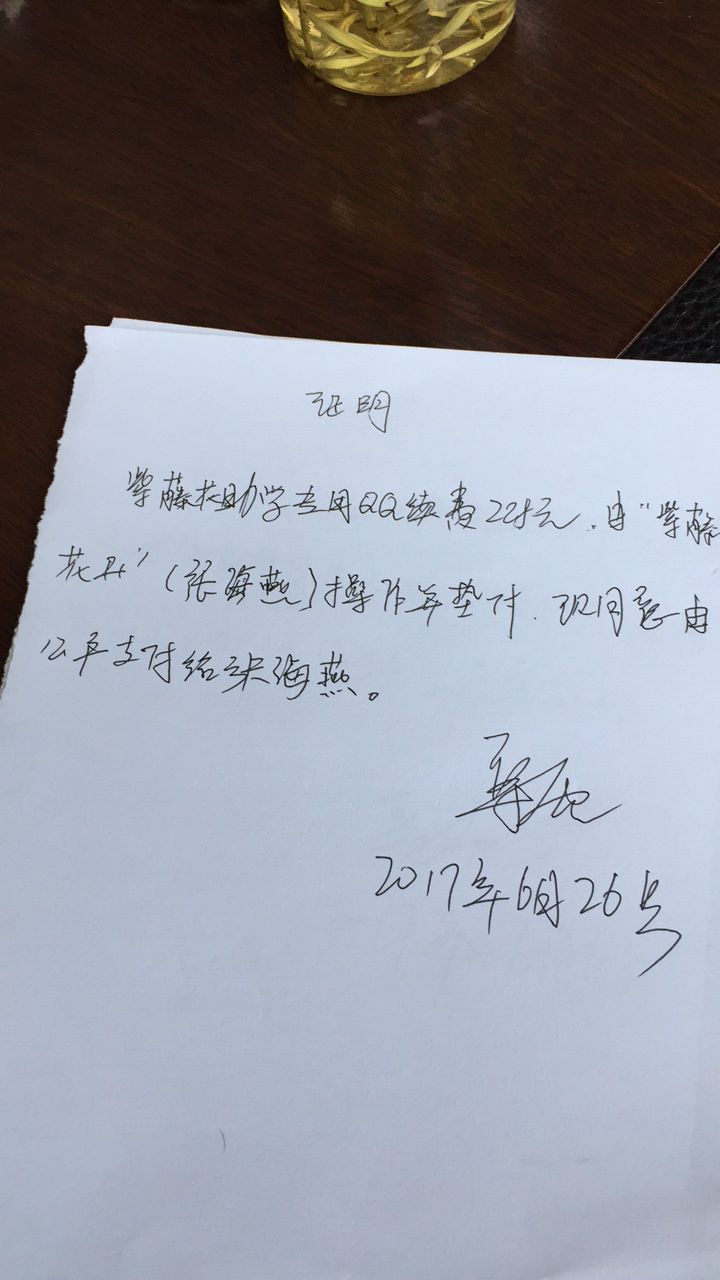 证明
紫藤花助学专用QQ续费225元,由"紫藤
花开"(张海燕)操作并垫付.现同意由
公户支付给张海燕。
2017年6月26号